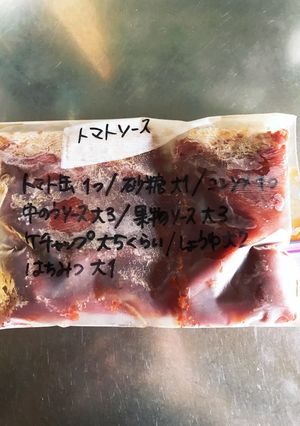 トマトソース
トマト缶1つ/砂糖大1/コンソメ1つ
中のソース大3/果物ソース大3
ケチャップ大5くらい/しょうゆ大2
はちみつ大1